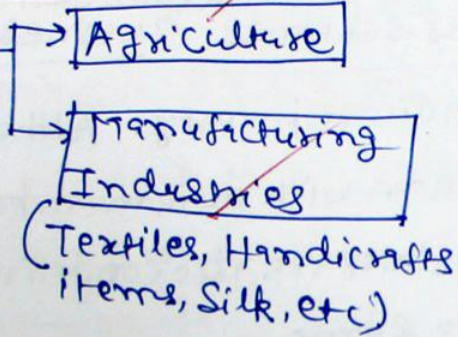 Agriculture
Manufacturing
Industries
(Textiles, Handicrafts
items, Silk, etc)